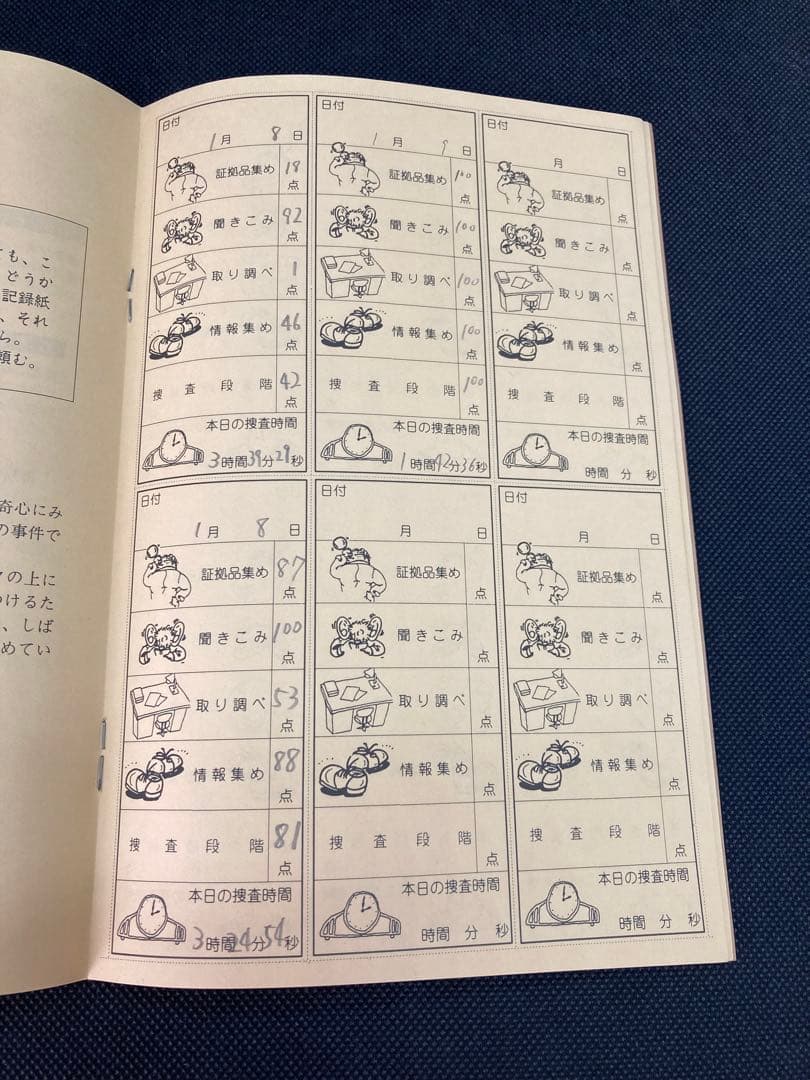 ても、こ
どうか
記録紙
、それ
ら。
頼む。
奇心にみ
の事件で
クの上に
つけるた
、しば
めてい
日付
1月 8日
証拠品集め 18点
聞きこみ 92点
取り調べ 1点
情報集め 46点
捜査段階 42点
本日の捜査時間
3時間39分29秒
日付
1月 9日
証拠品集め 100点
聞きこみ 100点
取り調べ 100点
情報集め 100点
捜査段階 100点
本日の捜査時間
1時間42分36秒
日付
月 日
証拠品集め 点
聞きこみ 点
取り調べ 点
情報集め 点
捜査段階 点
本日の捜査時間
時間 分 秒
日付
1月 8日
証拠品集め 87点
聞きこみ 100点
取り調べ 53点
情報集め 88点
捜査段階 81点
本日の捜査時間
3時間24分54秒
日付
月 日
証拠品集め 点
聞きこみ 点
取り調べ 点
情報集め 点
捜査段階 点
本日の捜査時間
時間 分 秒
日付
月 日
証拠品集め 点
聞きこみ 点
取り調べ 点
情報集め 点
捜査段階 点
本日の捜査時間
時間 分 秒